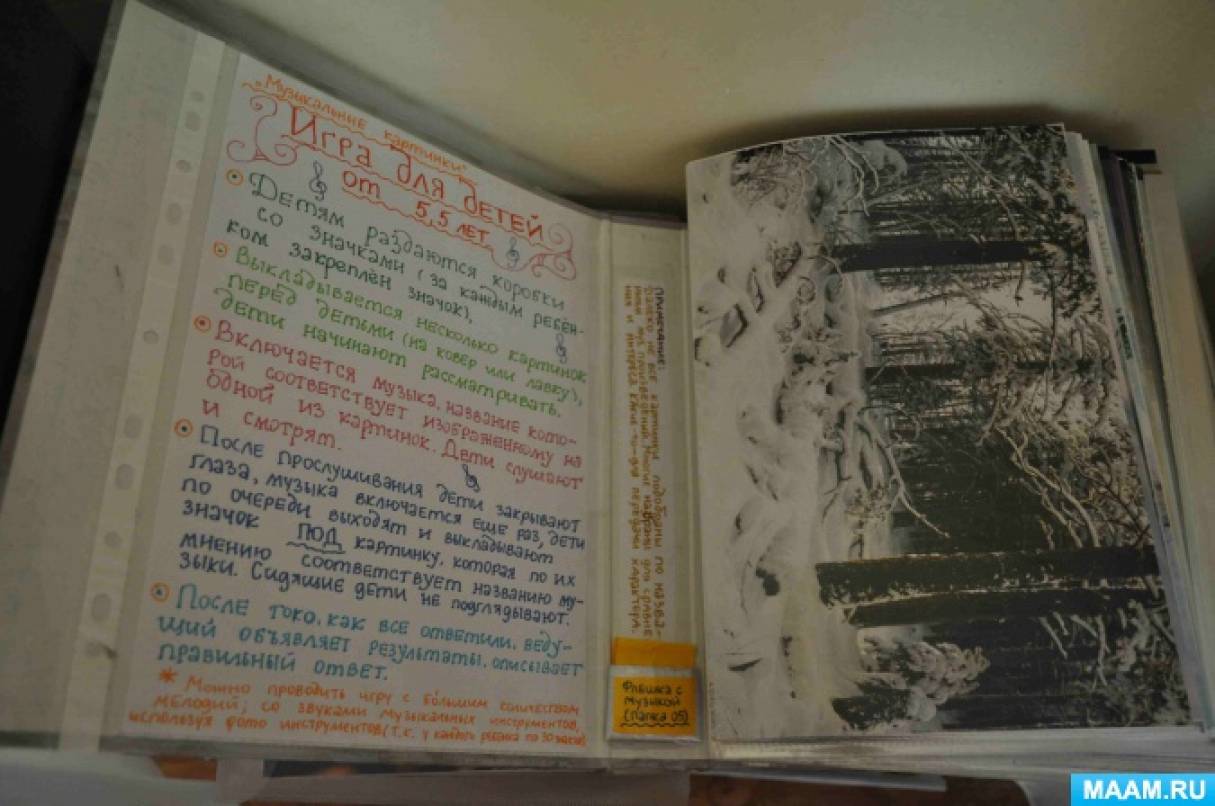 „Музыкальные картинки"
Игра для детей
от 5,5 лет
Детям раздаются коробки
со значками (за каждым ребён-
ком закреплён значок),
Выкладывается несколько картинок
перед детьми (на ковер или лавку),
дети начинают рассматривать.
Включается музыка, название кото-
рой соответствует изображенному на
одной из картинок. Дети слушают
и смотрят.
После прослушивания дети закрывают
глаза, музыка включается еще раз, дети
по очереди выходят и выкладывают
значок ПОД картинку, которая по их
мнению соответствует названию му-
зыки. Сидящие дети не подглядывают.
После того, как все ответили, веду-
щий объявляет результаты, описывает
правильный ответ.
* Можно проводить игру с большим количеством
мелодий; со звуками музыкальных инструментов,
используя фото инструментов (т.к. у каждого ребенка по 30
Примечание:
Далеко не все картинки подобраны по назва-
ниям муз. произведений. Многие набраны для сравне-
ния и интереса, какие-то для передачи характера.
Флешка с
музыкой
(папка 05)
MAAM.RU